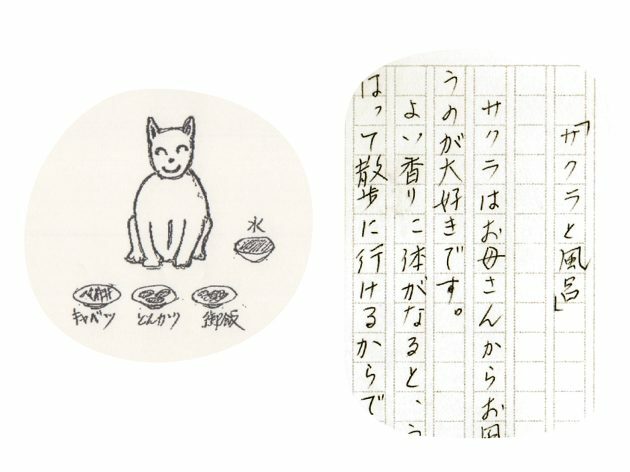 水
キャベツ
とんかつ
御飯
「サクラと風呂」
サクラはお母さんからお風
うのが大好きです。
よい香りに体がなると、う
はって散歩に行けるからで